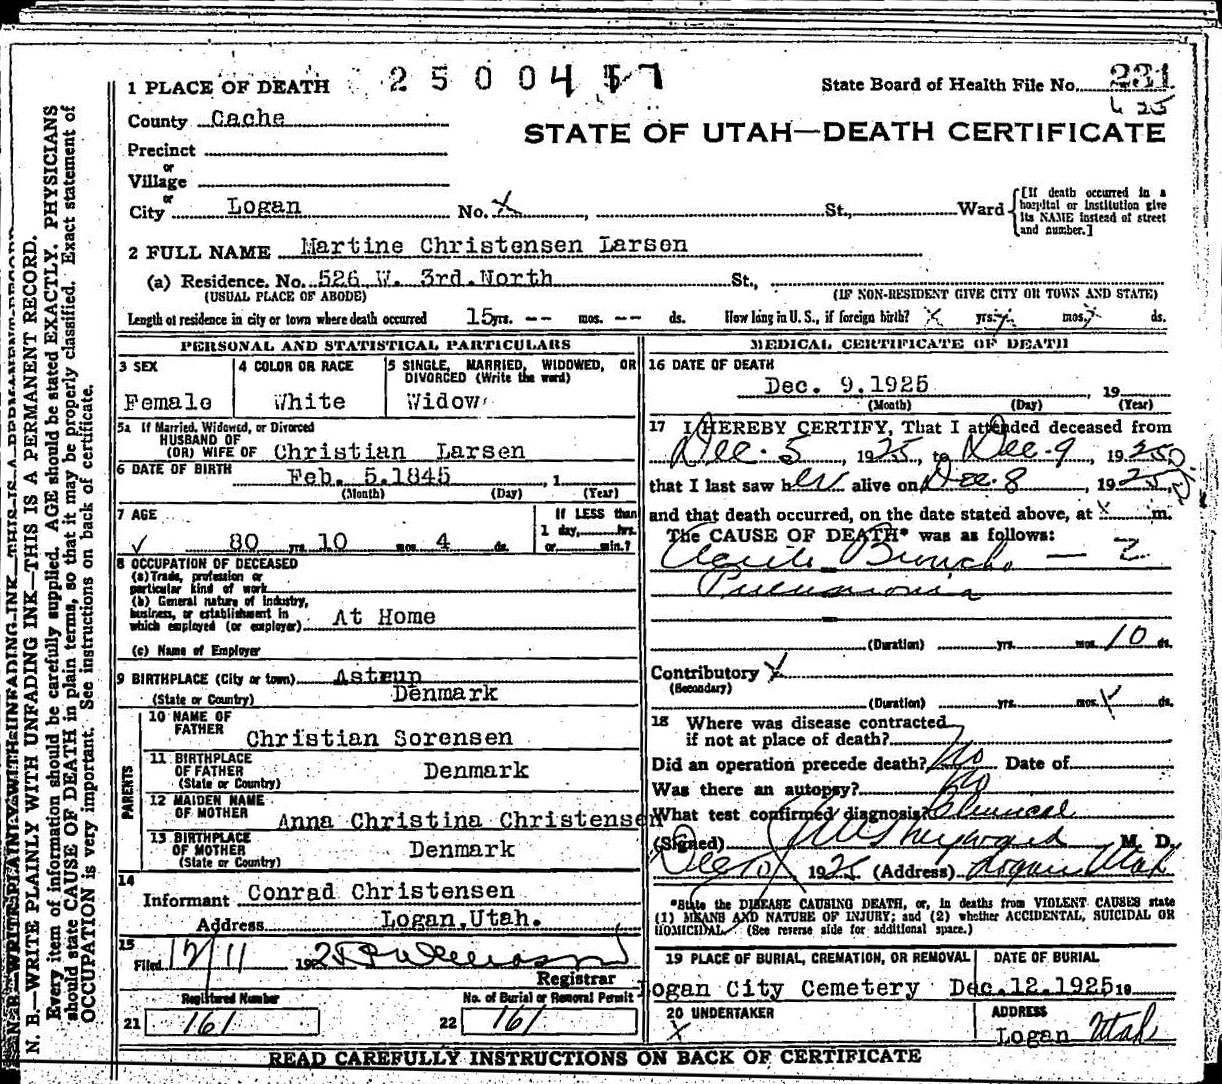 1 PLACE OF DEATH 2 5 0 0 4 5 7 State Board of Health File No. 231
County Cache
STATE OF UTAH—DEATH CERTIFICATE
Precinct
or
Village
or
City Logan No. x , St., Ward [If death occurred in a hospital or institution give its NAME instead of street and number.]
2 FULL NAME Martine Christensen Larsen
(a) Residence. No. 526 W. 3rd.North St.,
(USUAL PLACE OF ABODE) (IF NON-RESIDENT GIVE CITY OR TOWN AND STATE)
Length of residence in city or town where death occurred 15 yrs. -- mos. -- ds. How long in U. S., if foreign birth? x yrs. x mos. x ds.
PERSONAL AND STATISTICAL PARTICULARS
3 SEX
Female
4 COLOR OR RACE
White
5 SINGLE, MARRIED, WIDOWED, OR
DIVORCED (Write the word)
Widow
5a If Married, Widowed, or Divorced
HUSBAND OF
(OR) WIFE OF Christian Larsen
6 DATE OF BIRTH Feb. 5.1845 , 1
(Month) (Day) (Year)
7 AGE
80 yrs. 10 mos. 4 ds.
If LESS than
1 day, hrs.
or min.?
8 OCCUPATION OF DECEASED
(a) Trade, profession or
particular kind of work
(b) General nature of industry,
business, or establishment in
which employed (or employer) At Home
(c) Name of Employer
9 BIRTHPLACE (City or town) Astrup
(State or Country) Denmark
PARENTS
10 NAME OF
FATHER Christian Sorensen
11 BIRTHPLACE
OF FATHER Denmark
(State or Country)
12 MAIDEN NAME
OF MOTHER Anna Christina Christensen
13 BIRTHPLACE
OF MOTHER Denmark
(State or Country)
14
Informant Conrad Christensen
Address Logan,Utah.
15
Filed 12/11 1925
Registrar
Registered Number
21 161
No. of Burial or Removal Permit
22 161
MEDICAL CERTIFICATE OF DEATH
16 DATE OF DEATH
Dec. 9.1925 19
(Month) (Day) (Year)
17 I HEREBY CERTIFY, That I attended deceased from
Dec. 5, 1925, to Dec. 9, 1925
that I last saw her alive on Dec. 8, 1925,
and that death occurred, on the date stated above, at x m.
The CAUSE OF DEATH* was as follows:
Acute Broncho —
Pneumonia
(Duration) yrs. mos. 10 ds.
Contributory x
(Secondary)
(Duration) yrs. mos. x ds.
18 Where was disease contracted
if not at place of death?
Did an operation precede death? No Date of
Was there an autopsy? No
What test confirmed diagnosis? Clinical
(Signed) Hayward M. D.
Dec 10 1925 (Address) Logan Utah
*State the DISEASE CAUSING DEATH, or, in deaths from VIOLENT CAUSES state
(1) MEANS AND NATURE OF INJURY; and (2) whether ACCIDENTAL, SUICIDAL OR
HOMICIDAL. (See reverse side for additional space.)
19 PLACE OF BURIAL, CREMATION, OR REMOVAL
Logan City Cemetery
DATE OF BURIAL
Dec.12.1925 19
20 UNDERTAKER
x
ADDRESS
Logan Utah
READ CAREFULLY INSTRUCTIONS ON BACK OF CERTIFICATE
N. B.—WRITE PLAINLY WITH UNFADING INK—THIS IS A PERMANENT RECORD.
Every item of information should be carefully supplied. AGE should be stated EXACTLY. PHYSICIANS
should state CAUSE OF DEATH in plain terms, so that it may be properly classified. Exact statement of
OCCUPATION is very important. See instructions on back of certificate.